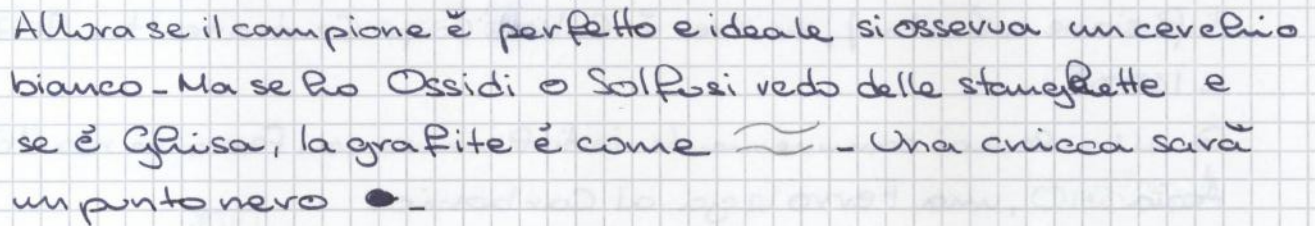 Allora se il campione è perfetto e ideale si osserva un cerchio
bianco - Ma se ho Ossidi o Solfusi vedo delle stanghette e
se è Ghisa, la grafite è come - Una cricca sarà
un punto nero -